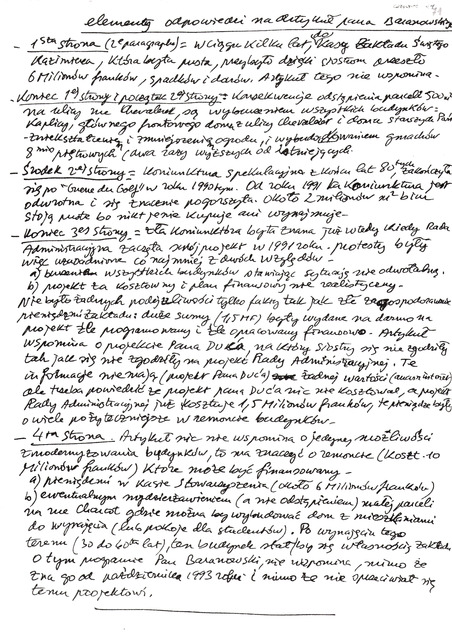 elementy odpowiedzi na artykuł pana Baranowskiego
- 1sza strona (2e paragraphe) = W ciągu kilku lat, do Kasy Zakładu Świętego
Kazimierza, która była pusta, przybyło dzięki siostrom areszto
6 Milionów franków, spadków i darów. Artykuł tego nie wspomina.
- Koniec 1ej strony i początek 2ej strony = Konsekwencje odstąpienia parceli 500 m²
na ulicy rue Chevaleret, są wyburzeniem wszystkich budynków =
Kaplicy, głównego frontowego domu z ulicy Chevaleret i domu starszych Pań
zniekształcenia i zmniejszenia ogrodu, i wybudowaniem gmachów
8mio piętrowych (dwa razy wyższych od istniejących).
- Środek 2ej strony = Koniunktura spekulacyjna z końca lat 80tych zakończyła
się po "Guerre du Golfe" w roku 1990tym. Od roku 1991 ta koniunktura jest
odwrotna i się znacznie pogorszyła. Około 2 milionów m² biur
stoją puste bo nikt je nie kupuje ani wynajmuje -
- Koniec 3ej strony = Zła koniunktura była znana już wtedy kiedy Rada
Administracyjna zaczęła swój projekt w 1991 roku. protesty były
więc uzasadnione co najmniej z dwóch względów -
a) burzenie wszystkich budynków stanowiąc sytuację nie odwołalną.
b) projekt za kosztowny i plan finansowy nie realistyczny.
Nie było żadnych podejrzliwości tylko fakty tak jak złe zagospodarowanie
pieniędzmi zakładu: duże sumy (1,5 MF) były wydane na darmo na
projekt źle programowany i źle opracowany finansowo. Artykuł
wspomina o projekcie Pana DUCA na który Siostry się nie zgodziły
tak jak się nie zgodziły na projekt Rady Administracyjnej. Te
informacje nie mają (projekt Pana Duc'a) żadnej wartości
ale trzeba powiedzieć że projekt pana Duc'a nic nie kosztował, a projekt
Rady Administracyjnej już kosztuje 1,5 Milionów franków, te pieniądze byłyby
o wiele pożyteczniejsze w remoncie budynków.
- 4ta strona. Artykuł nic nie wspomina o jedynej możliwości
zmodernizowania budynków, to ma znaczyć o remoncie (koszt. 10
Milionów franków) które może być finansowany -
a) pieniędzmi w Kasie Stowarzyszenia (około 6 Milionów franków)
b) ewentualnym wydzierżawieniem (a nie odstąpieniem) małej parceli
na rue Charcot gdzie można by wybudować dom z mieszkaniami
do wynajęcia (lub pokoje dla studentów). Po wynajęciu tego
terenu (30 do 60ciu lat), ten budynek stałby się własnością zakładu
O tym programie Pan Baranowski, nie wspomina, mimo że
zna go od października 1993 roku i mimo że nie sprzeciwiał się
temu projektowi.